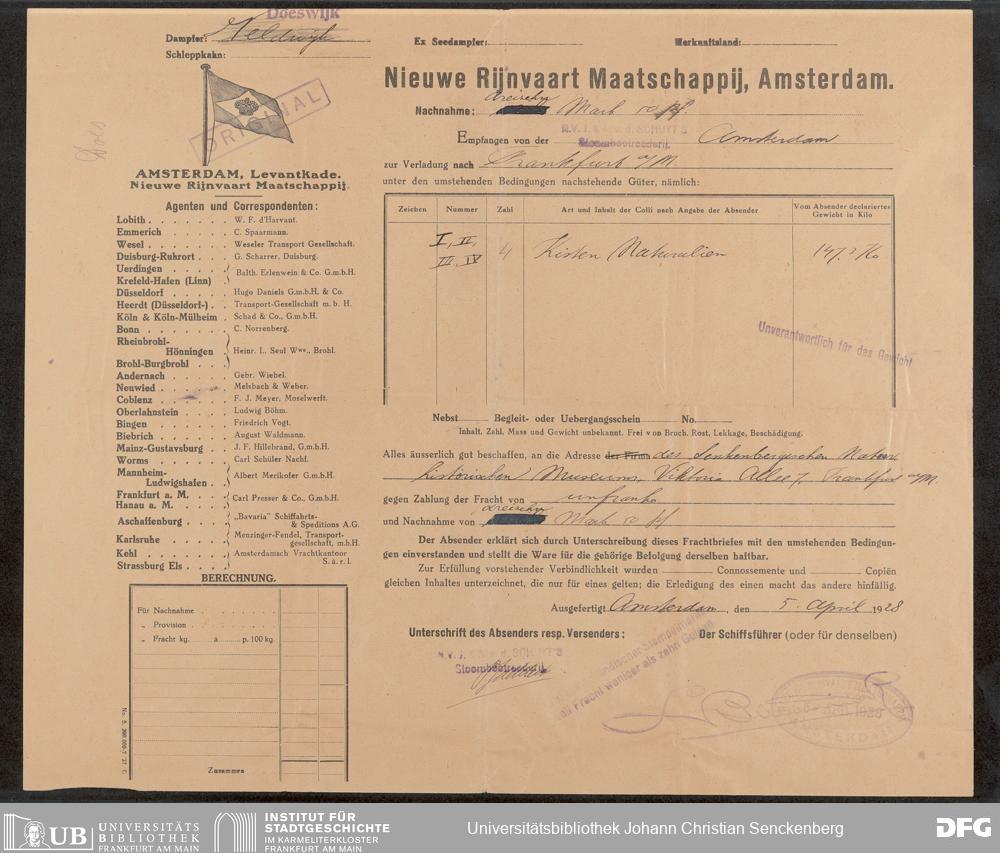 Doeswijk
Dampfer: Veldwijk
Ex Seedampfer:
Herkunftsland:
Schleppkahn:
Nieuwe Rijnvaart Maatschappij, Amsterdam.
ORIGINAL
Does
Nachnahme: dreizehn Mark 50 Pf.
Empfangen von der N.V. J. & A. v. d. SCHUYT'S Amsterdam
Stoombootreederij.
zur Verladung nach Frankfurt a/M.
unter den umstehenden Bedingungen nachstehende Güter, nämlich:
AMSTERDAM, Levantkade.
Nieuwe Rijnvaart Maatschappij.
Agenten und Correspondenten:
Lobith . . . . . . W. F. d'Harvant.
Emmerich . . . . . C. Spaarmann.
Wesel . . . . . . . Weseler Transport Gesellschaft.
Duisburg-Ruhrort . . . G. Scharrer, Duisburg.
Uerdingen . . . . .
Krefeld-Hafen (Linn) Balth. Erlenwein & Co. G.m.b.H.
Düsseldorf . . . . . Hugo Daniels G.m.b.H. & Co.
Heerdt (Düsseldorf-) . . Transport-Gesellschaft m. b. H.
Köln & Köln-Mülheim . Schad & Co., G.m.b.H.
Bonn . . . . . . . C. Norrenberg.
Rheinbrohl-
Hönningen Heinr. L. Seul Wwe., Brohl.
Brohl-Burgbrohl . . .
Andernach . . . . . Gebr. Wiebel.
Neuwied . . . . . . Melsbach & Weber.
Coblenz . . . . . . F. J. Meyer, Moselwerft.
Oberlahnstein . . . . Ludwig Böhm.
Bingen . . . . . . Friedrich Vogt.
Biebrich . . . . . . August Waldmann.
Mainz-Gustavsburg . . J. F. Hillebrand, G.m.b.H.
Worms . . . . . . Carl Schüler Nachf.
Mannheim-
Ludwigshafen . . Albert Merikofer G.m.b.H.
Frankfurt a. M. . . .
Hanau a. M. . . . . Carl Presser & Co., G.m.b.H.
Aschaffenburg . . . . „Bavaria" Schiffahrts-
& Speditions A.G.
Karlsruhe . . . . . Menzinger-Fendel, Transport-
gesellschaft, m.b.H.
Kehl . . . . . . . Amsterdamsch Vrachtkantoor
Strassburg Els . . . . S. à. r. l.
BERECHNUNG.
Für Nachnahme . . . . . . . .
„ Provision . . . . . . . .
„ Fracht kg. à p. 100 kg.
Zusammen
Zeichen Nummer Zahl Art und Inhalt der Colli nach Angabe der Absender Vom Absender declariertes
Gewicht in Kilo
I, II,
III, IV 4 Kisten Naturalien
Unverantwortlich für das Gewicht
Nebst Begleit- oder Uebergangsschein No.
Inhalt, Zahl, Mass und Gewicht unbekannt. Frei von Bruch, Rost, Lekkage, Beschädigung.
Alles äusserlich gut beschaffen, an die Adresse der Firma des Senkenbergischen Natur
historischen Museums, Viktoria Allee 7, Frankfurt a/M.
gegen Zahlung der Fracht von unfranko
und Nachnahme von dreizehn Mark 50 Pf
Der Absender erklärt sich durch Unterschreibung dieses Frachtbriefes mit den umstehenden Bedingun-
gen einverstanden und stellt die Ware für die gehörige Befolgung derselben haftbar.
Zur Erfüllung vorstehender Verbindlichkeit wurden Connossemente und Copiën
gleichen Inhaltes unterzeichnet, die nur für eines gelten; die Erledigung des einen macht das andere hinfällig.
Ausgefertigt Amsterdam, den 5. April 1928
Unterschrift des Absenders resp. Versenders:
Der Schiffsführer (oder für denselben)
N.V. J. & A. v. d. SCHUYT'S
Stoombootreederij.
von Fracht weniger als zehn Gulden
AMSTERDAM
UB UNIVERSITÄTS
BIBLIOTHEK
FRANKFURT AM MAIN
INSTITUT FÜR
STADTGESCHICHTE
IM KARMELITERKLOSTER
FRANKFURT AM MAIN
Universitätsbibliothek Johann Christian Senckenberg
DFG